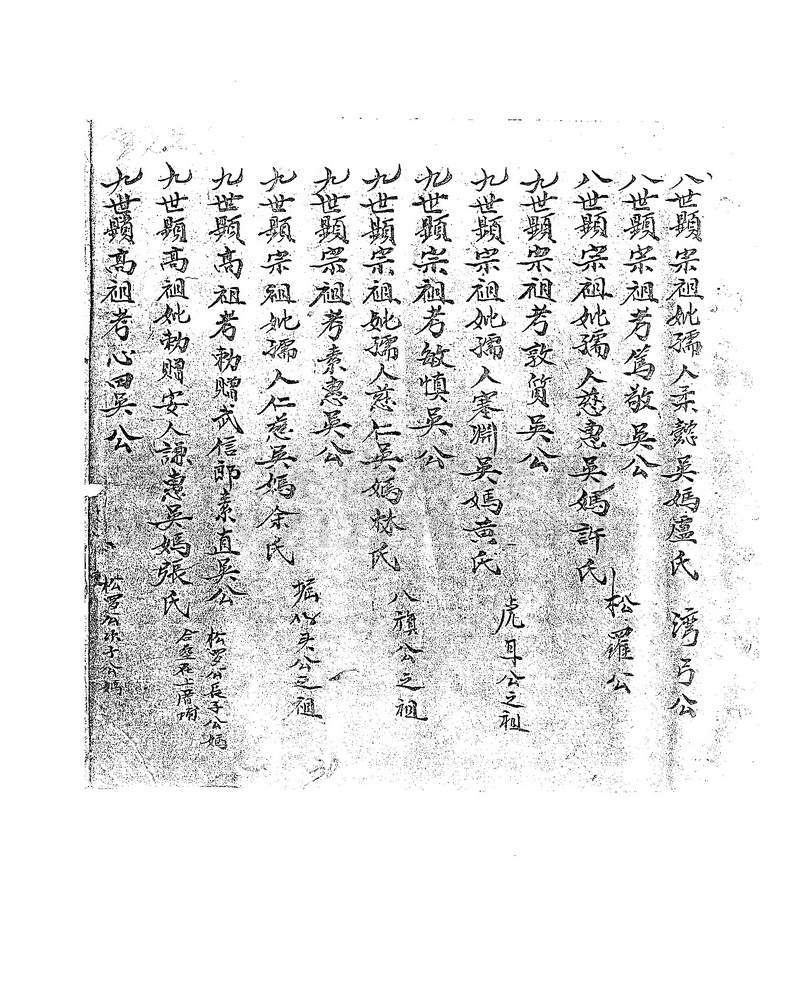 八世顯宗祖妣孺人柔懿吳媽盧氏 湾弓公
八世顯宗祖考篤敬吳公
八世顯宗祖妣孺人慈惠吳媽許氏 松羅公
九世顯宗祖考敦質吳公
九世顯宗祖妣孺人寒淵吳媽黄氏 虎耳公之祖
九世顯宗祖考敏慎吳公
九世顯宗祖妣孺人慈仁吳媽林氏 八旗公之祖
九世顯宗祖考素惠吳公
九世顯宗祖妣孺人仁慈吳媽余氏 堀头公之祖
九世顯高祖考勅贈武信郎素直吳公 松罗公長子公媽
九世顯高祖妣勅贈安人謙惠吳媽張氏 合在上厝
九世顯高祖考心田吳公 松罗公次子公媽